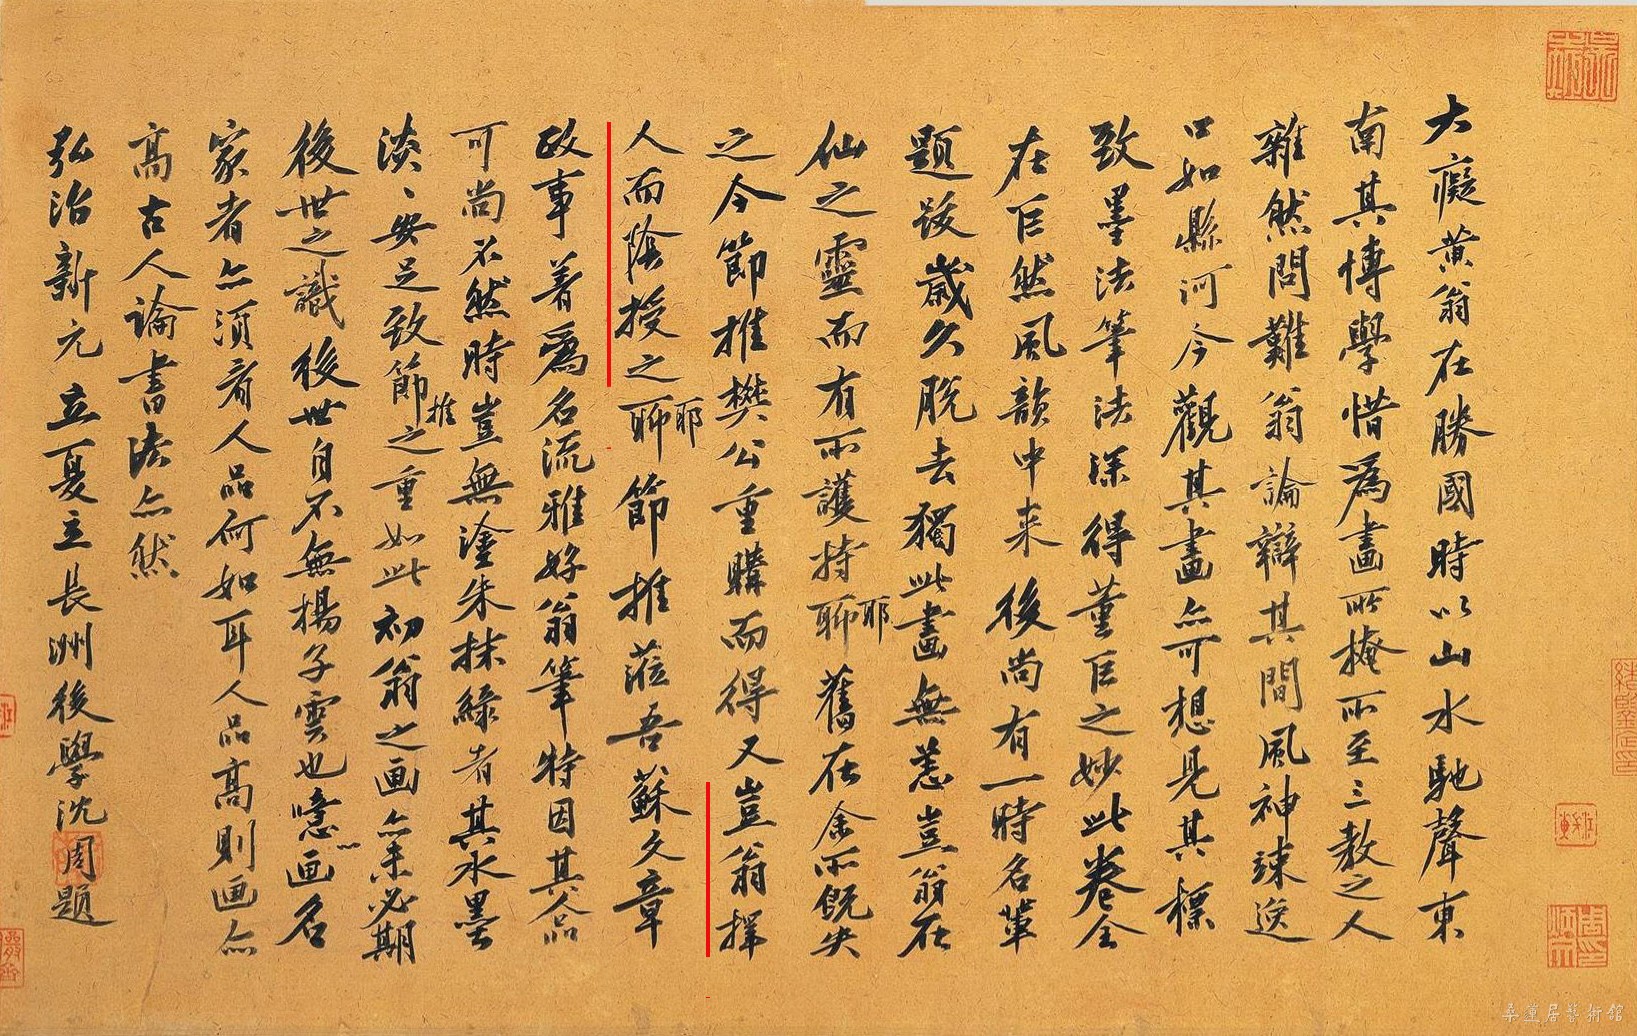 大癡黃翁在勝國時以山水馳聲東
南其博學惜為畫所掩所至三教之人
雜然問難翁論辯其間風神竦逸
口如懸河今觀其畫亦可想見其標
致墨法筆法深得董巨之妙此卷全
在巨然風韻中来後尚有一時名輩
題跋歲久脫去獨此畫無恙豈翁在
仙之靈而有所護持聊耶舊在余所既失
之今節推樊公重購而得又豈翁擇
人而陰授之聊耶節推蒞吾蘇文章
政事著為名流雅好翁筆特因其人品
可尚不然時豈無塗朱抹綠者其水墨
淡、安足致節推之重如此初翁之画亦未必期
後世之識後世自不無揚子雲也噫画名
家者亦須看人品何如耳人品高則画亦
高古人論書法亦然
弘治新元立夏立長洲後學沈周題
桑蓮居藝術館